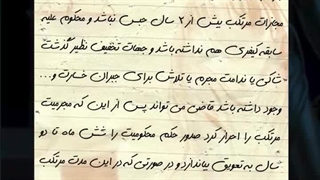 مجازات مرتکب بیش از ۲ سال حبس نباشد و محکوم علیه
سابقه کیفری هم نداشته باشد و جهات تخفیف نظیر گذشت
شاکی یا ندامت مجرم یا تلاش برای جبران خسارت و...
وجود داشته باشد قاضی می تواند پس از این که مجرمیت
مرتکب را احراز کرد صدور حکم محکومیت را شش ماه تا دو
سال به تعویق بیاندازد و در صورتی که در این مدت مرتکب